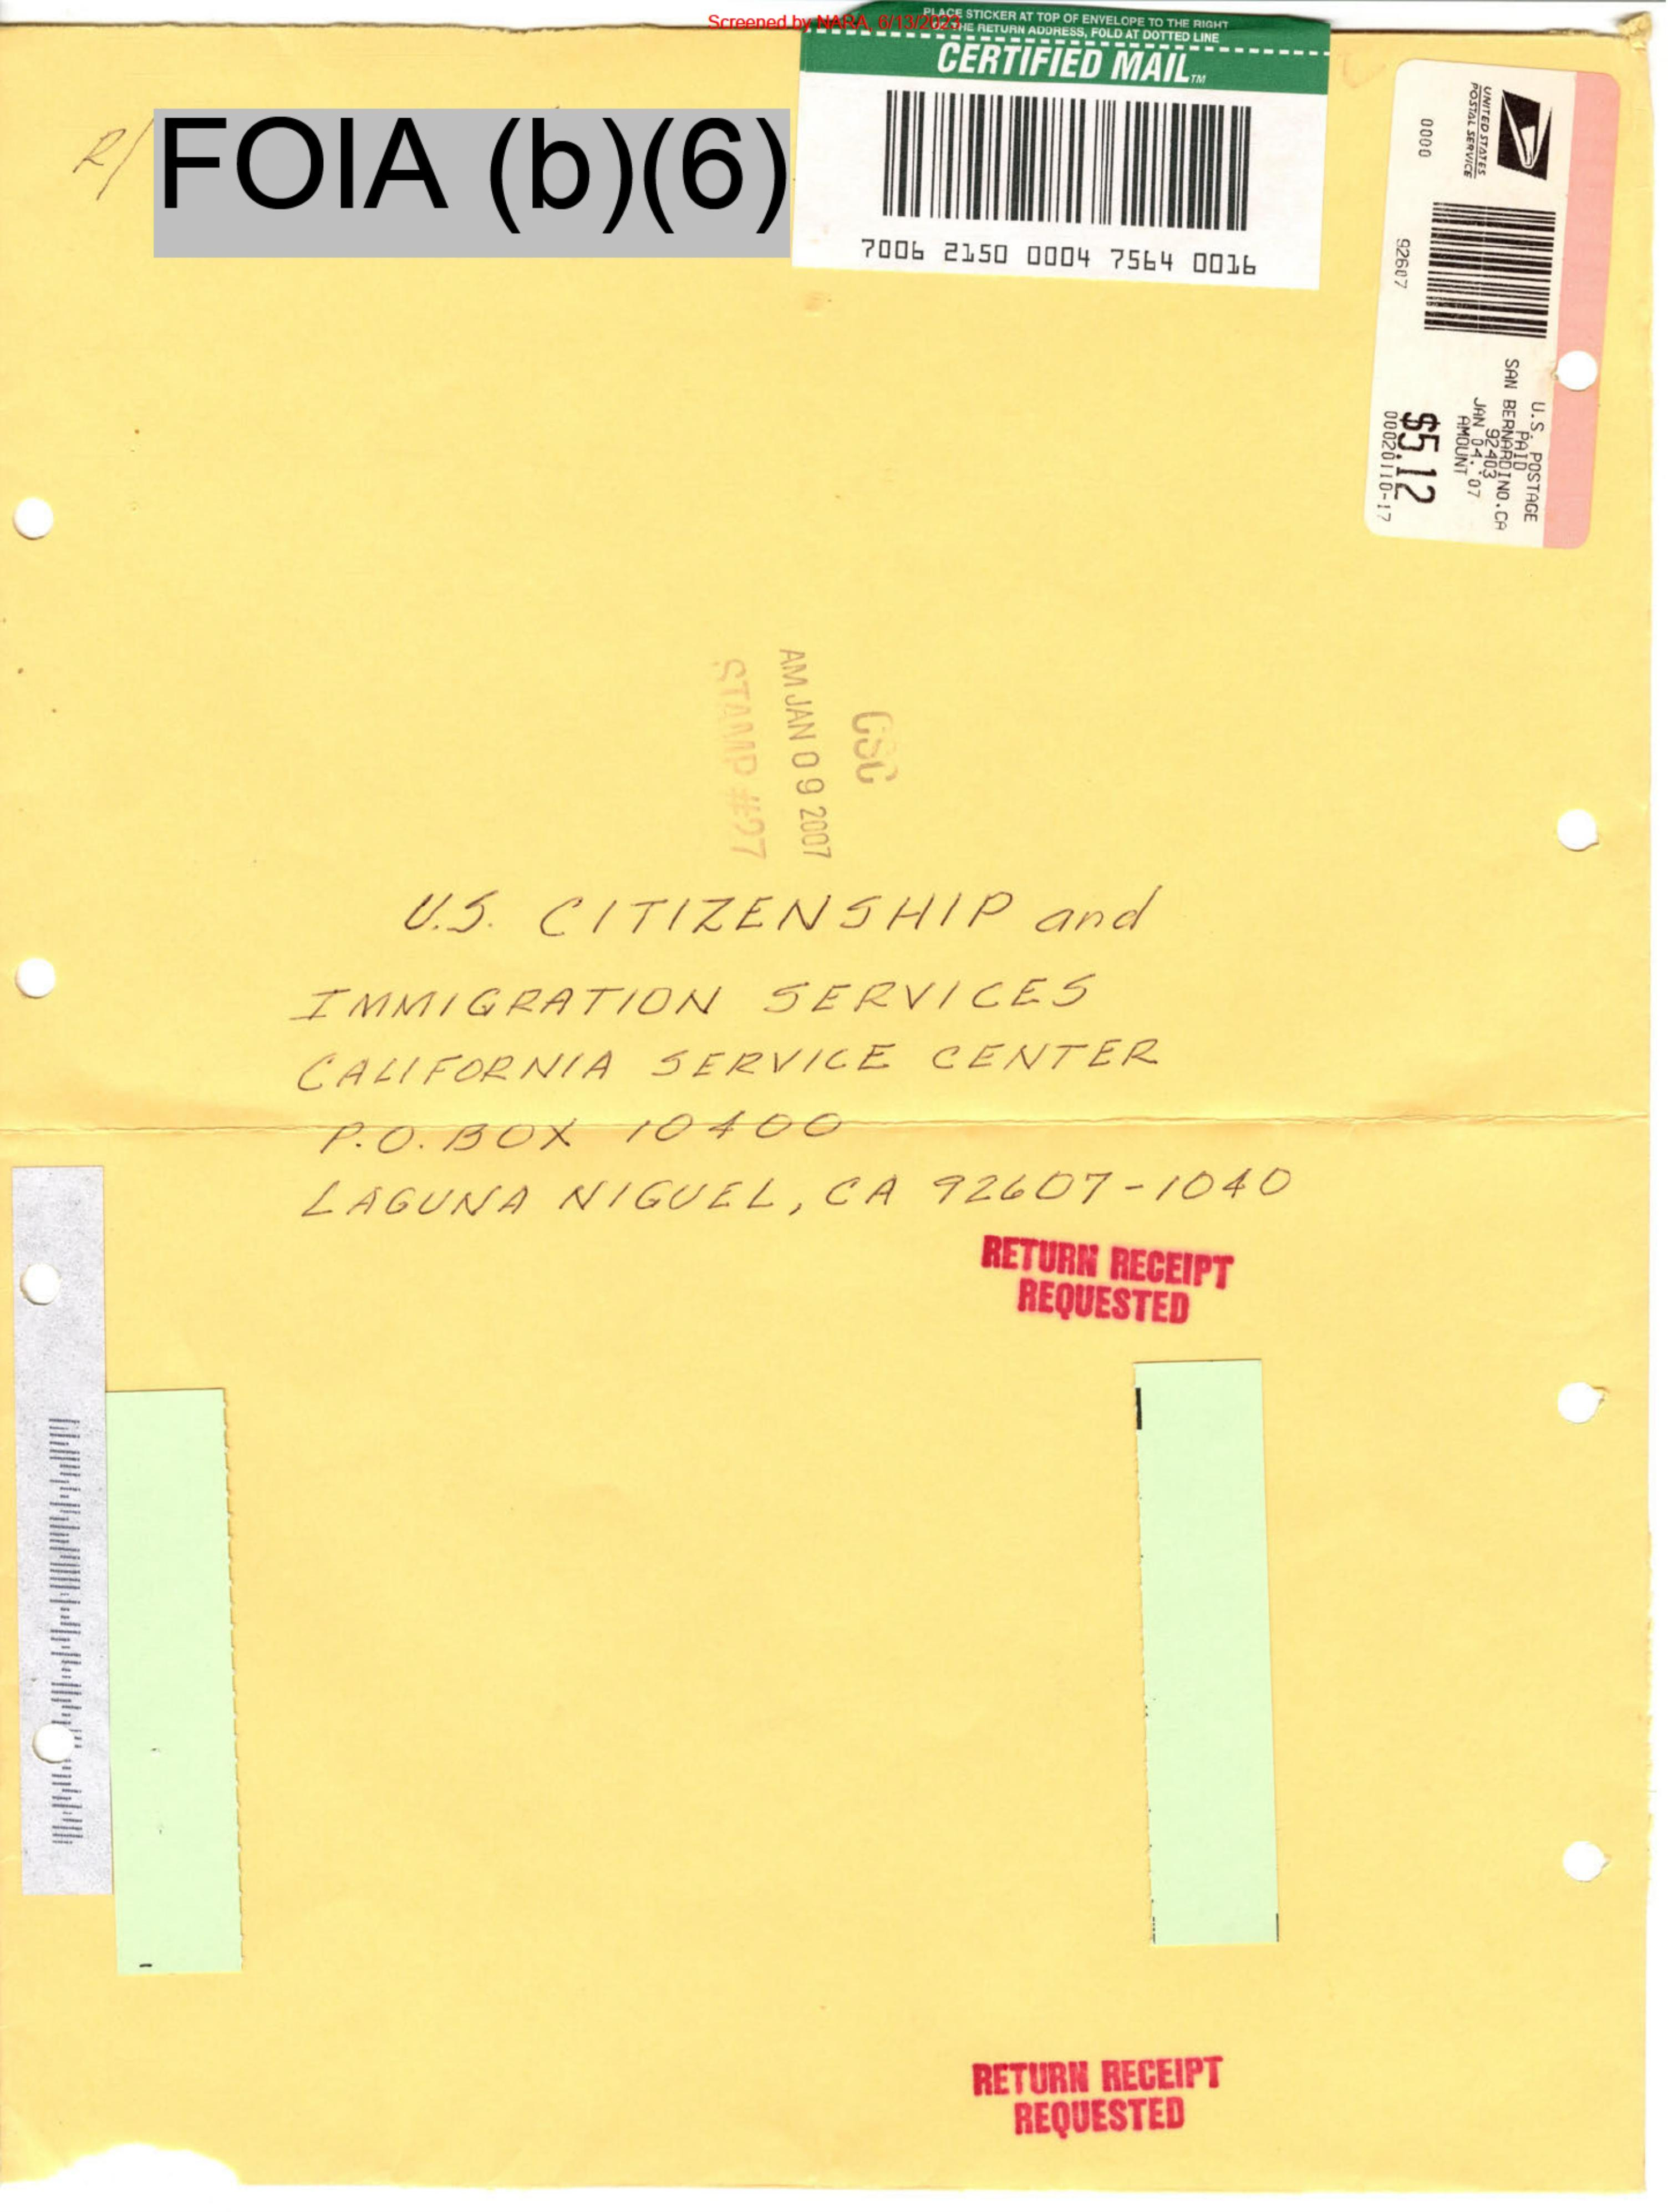 Screened by NARA, 6/13/2023
PLACE STICKER AT TOP OF ENVELOPE TO THE RIGHT
THE RETURN ADDRESS, FOLD AT DOTTED LINE
CERTIFIED MAIL™
7006 2150 0004 7564 0016
R/
FOIA (b)(6)
UNITED STATES
POSTAL SERVICE
0000
92607
U.S. POSTAGE
PAID
SAN BERNARDINO.CA
92403
JAN 04.'07
AMOUNT
$5.12
00020110-17
CSC
AM JAN 09 2007
STAMP #27
U.S. CITIZENSHIP and
IMMIGRATION SERVICES
CALIFORNIA SERVICE CENTER
P.O. BOX 10400
LAGUNA NIGUEL, CA 92607-1040
RETURN RECEIPT
REQUESTED
RETURN RECEIPT
REQUESTED